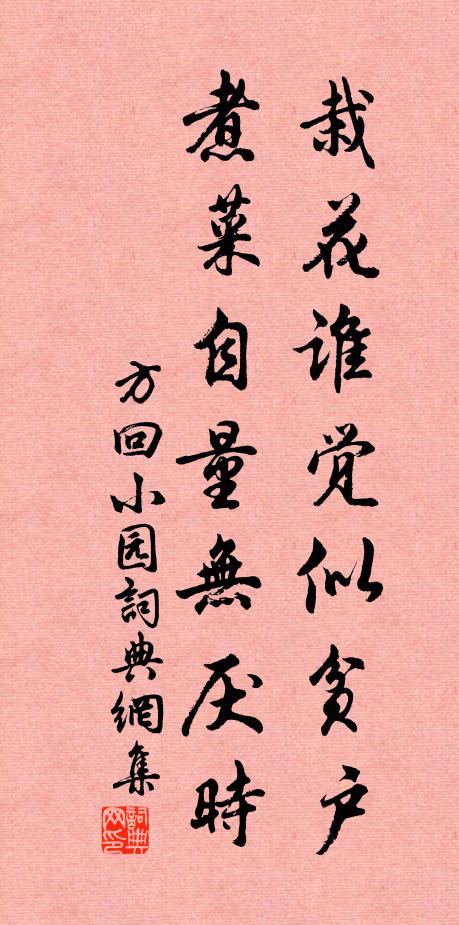 栽花谁觉似贫户
煮菜自量無厌時
方回小园詞典網集
詞典网印